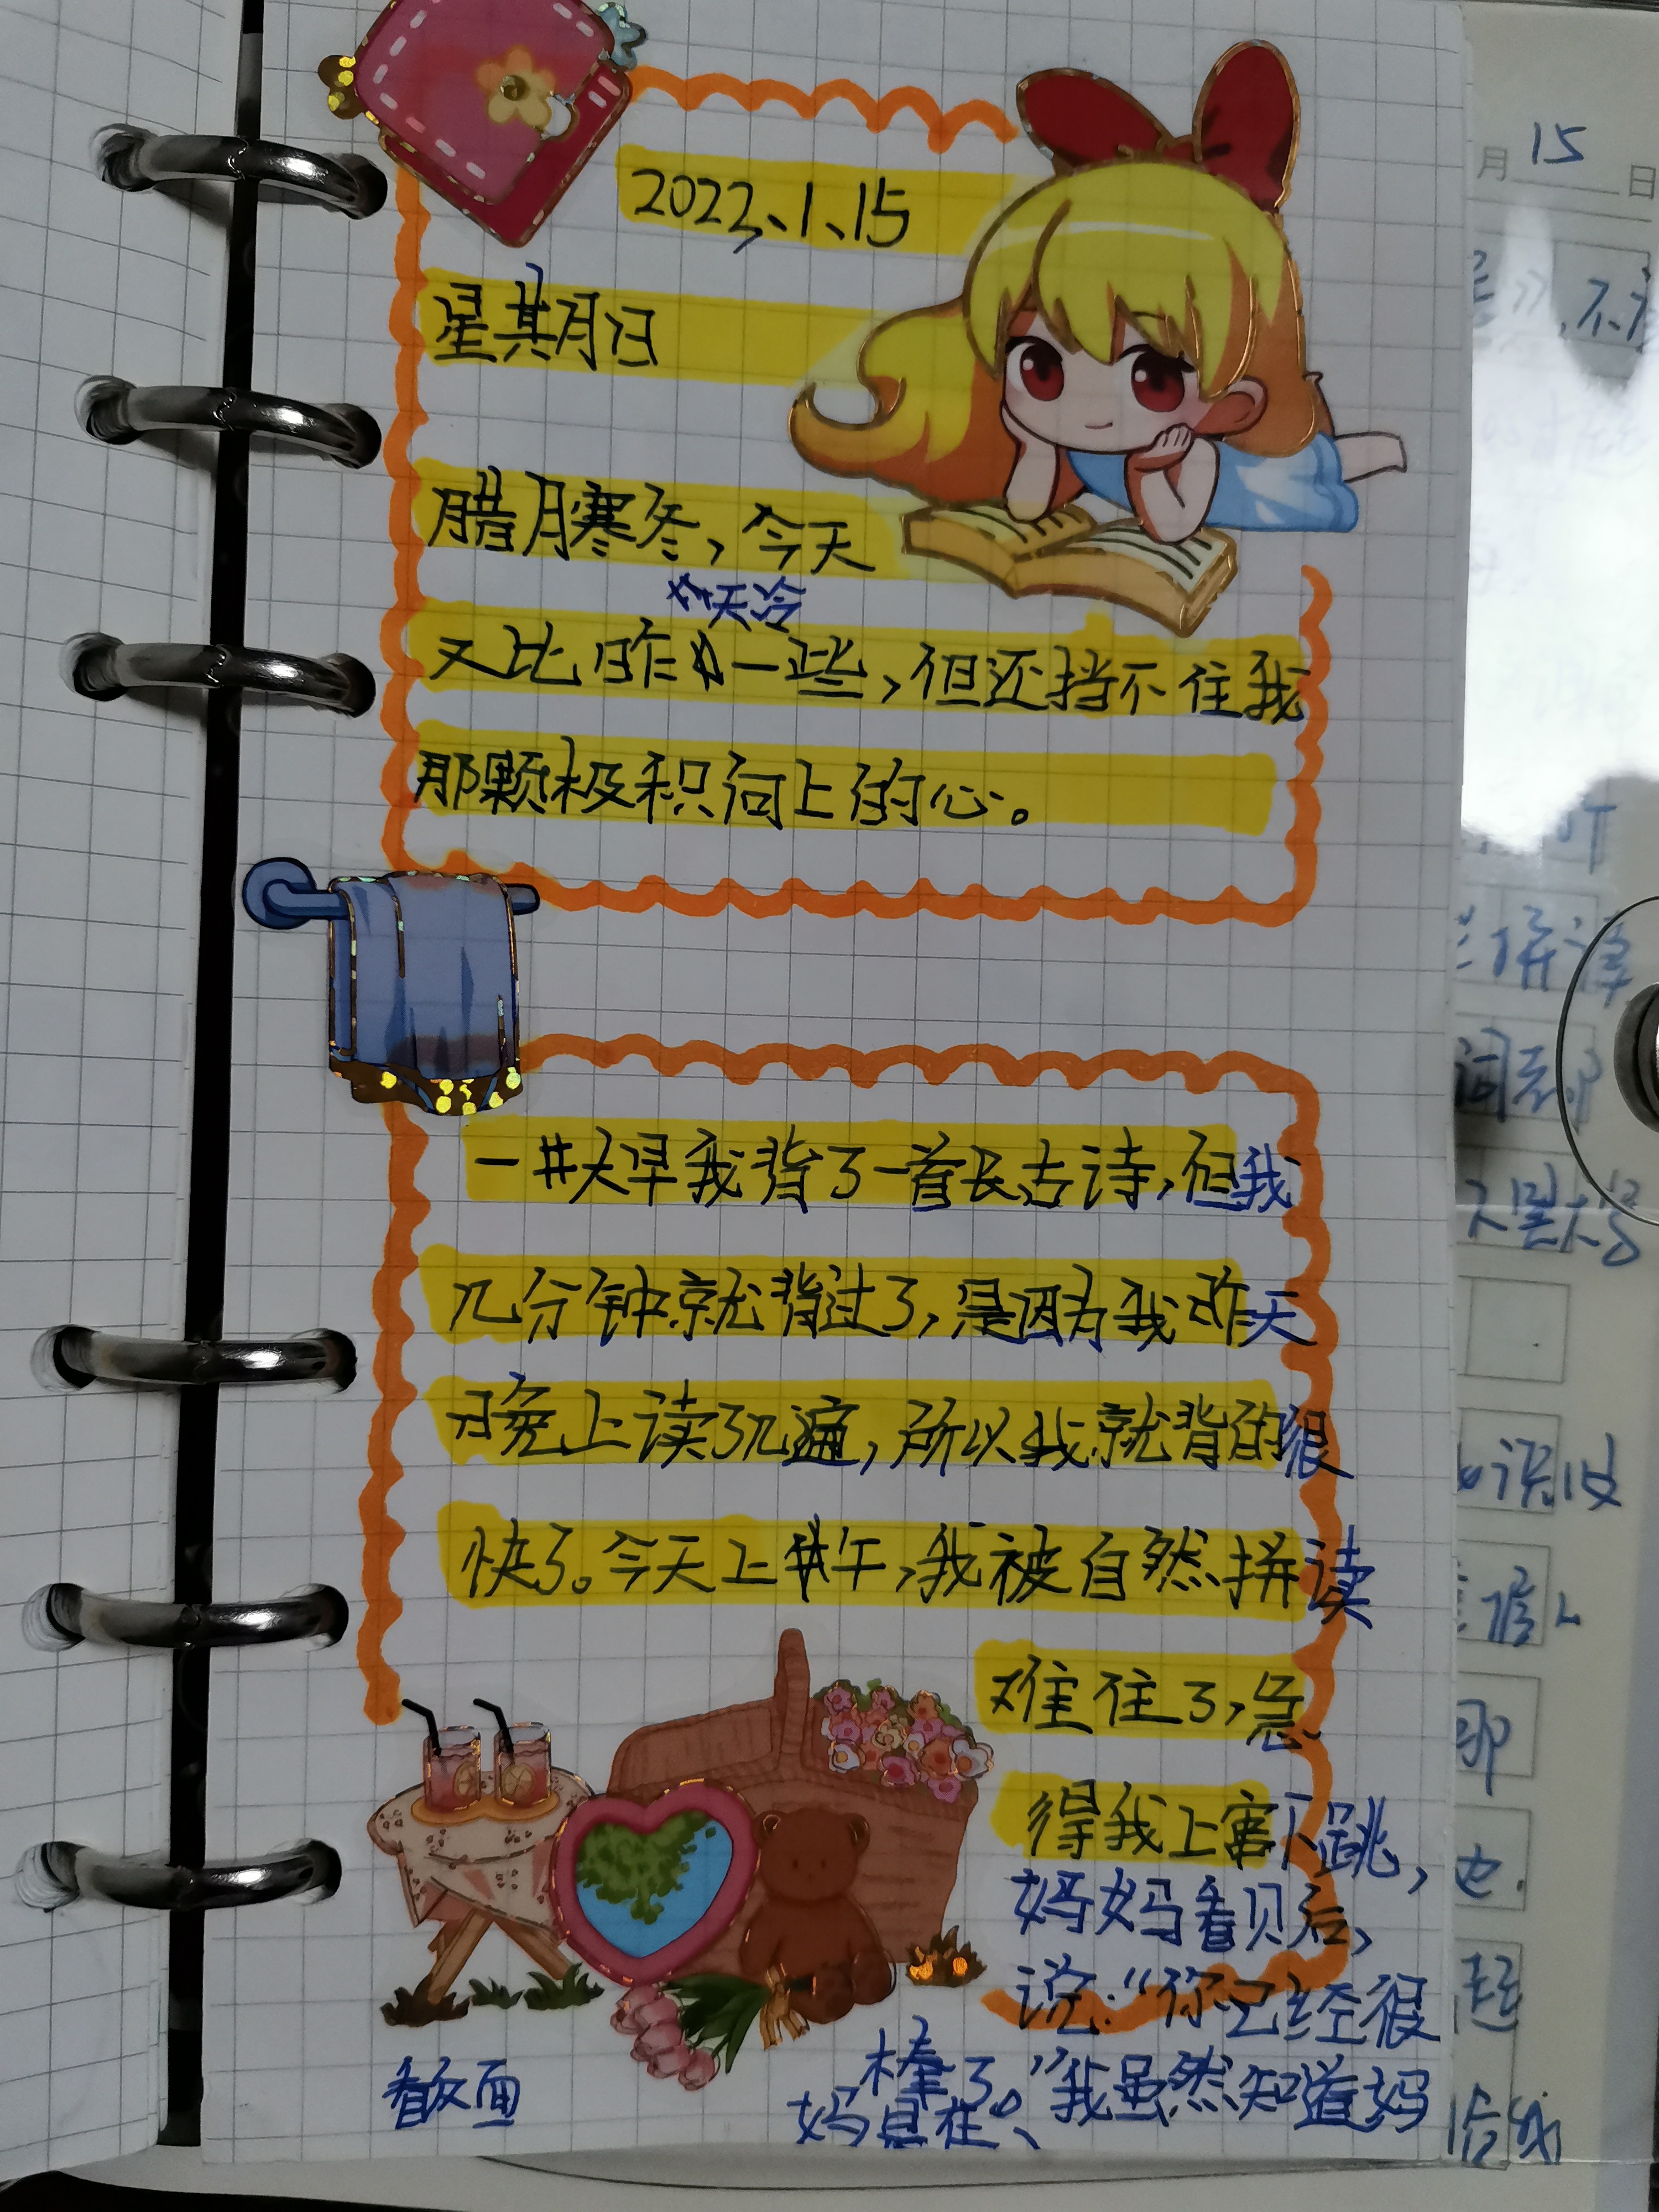 2023、1、15
星期日
腊月寒冬，今天
天冷
又比昨一些，但还挡不住我
那颗极积向上的心。
一大早我背了一首长古诗，但我
几分钟就背过了，是因为我昨天
晚上读了几遍，所以我就背的很
快了。今天上午，我被自然拼读
难住了，急
得我上窜下跳，
妈妈看见后，
说：“你已经很
棒了。”我虽然知道妈
妈是在
看反面
月 15 日